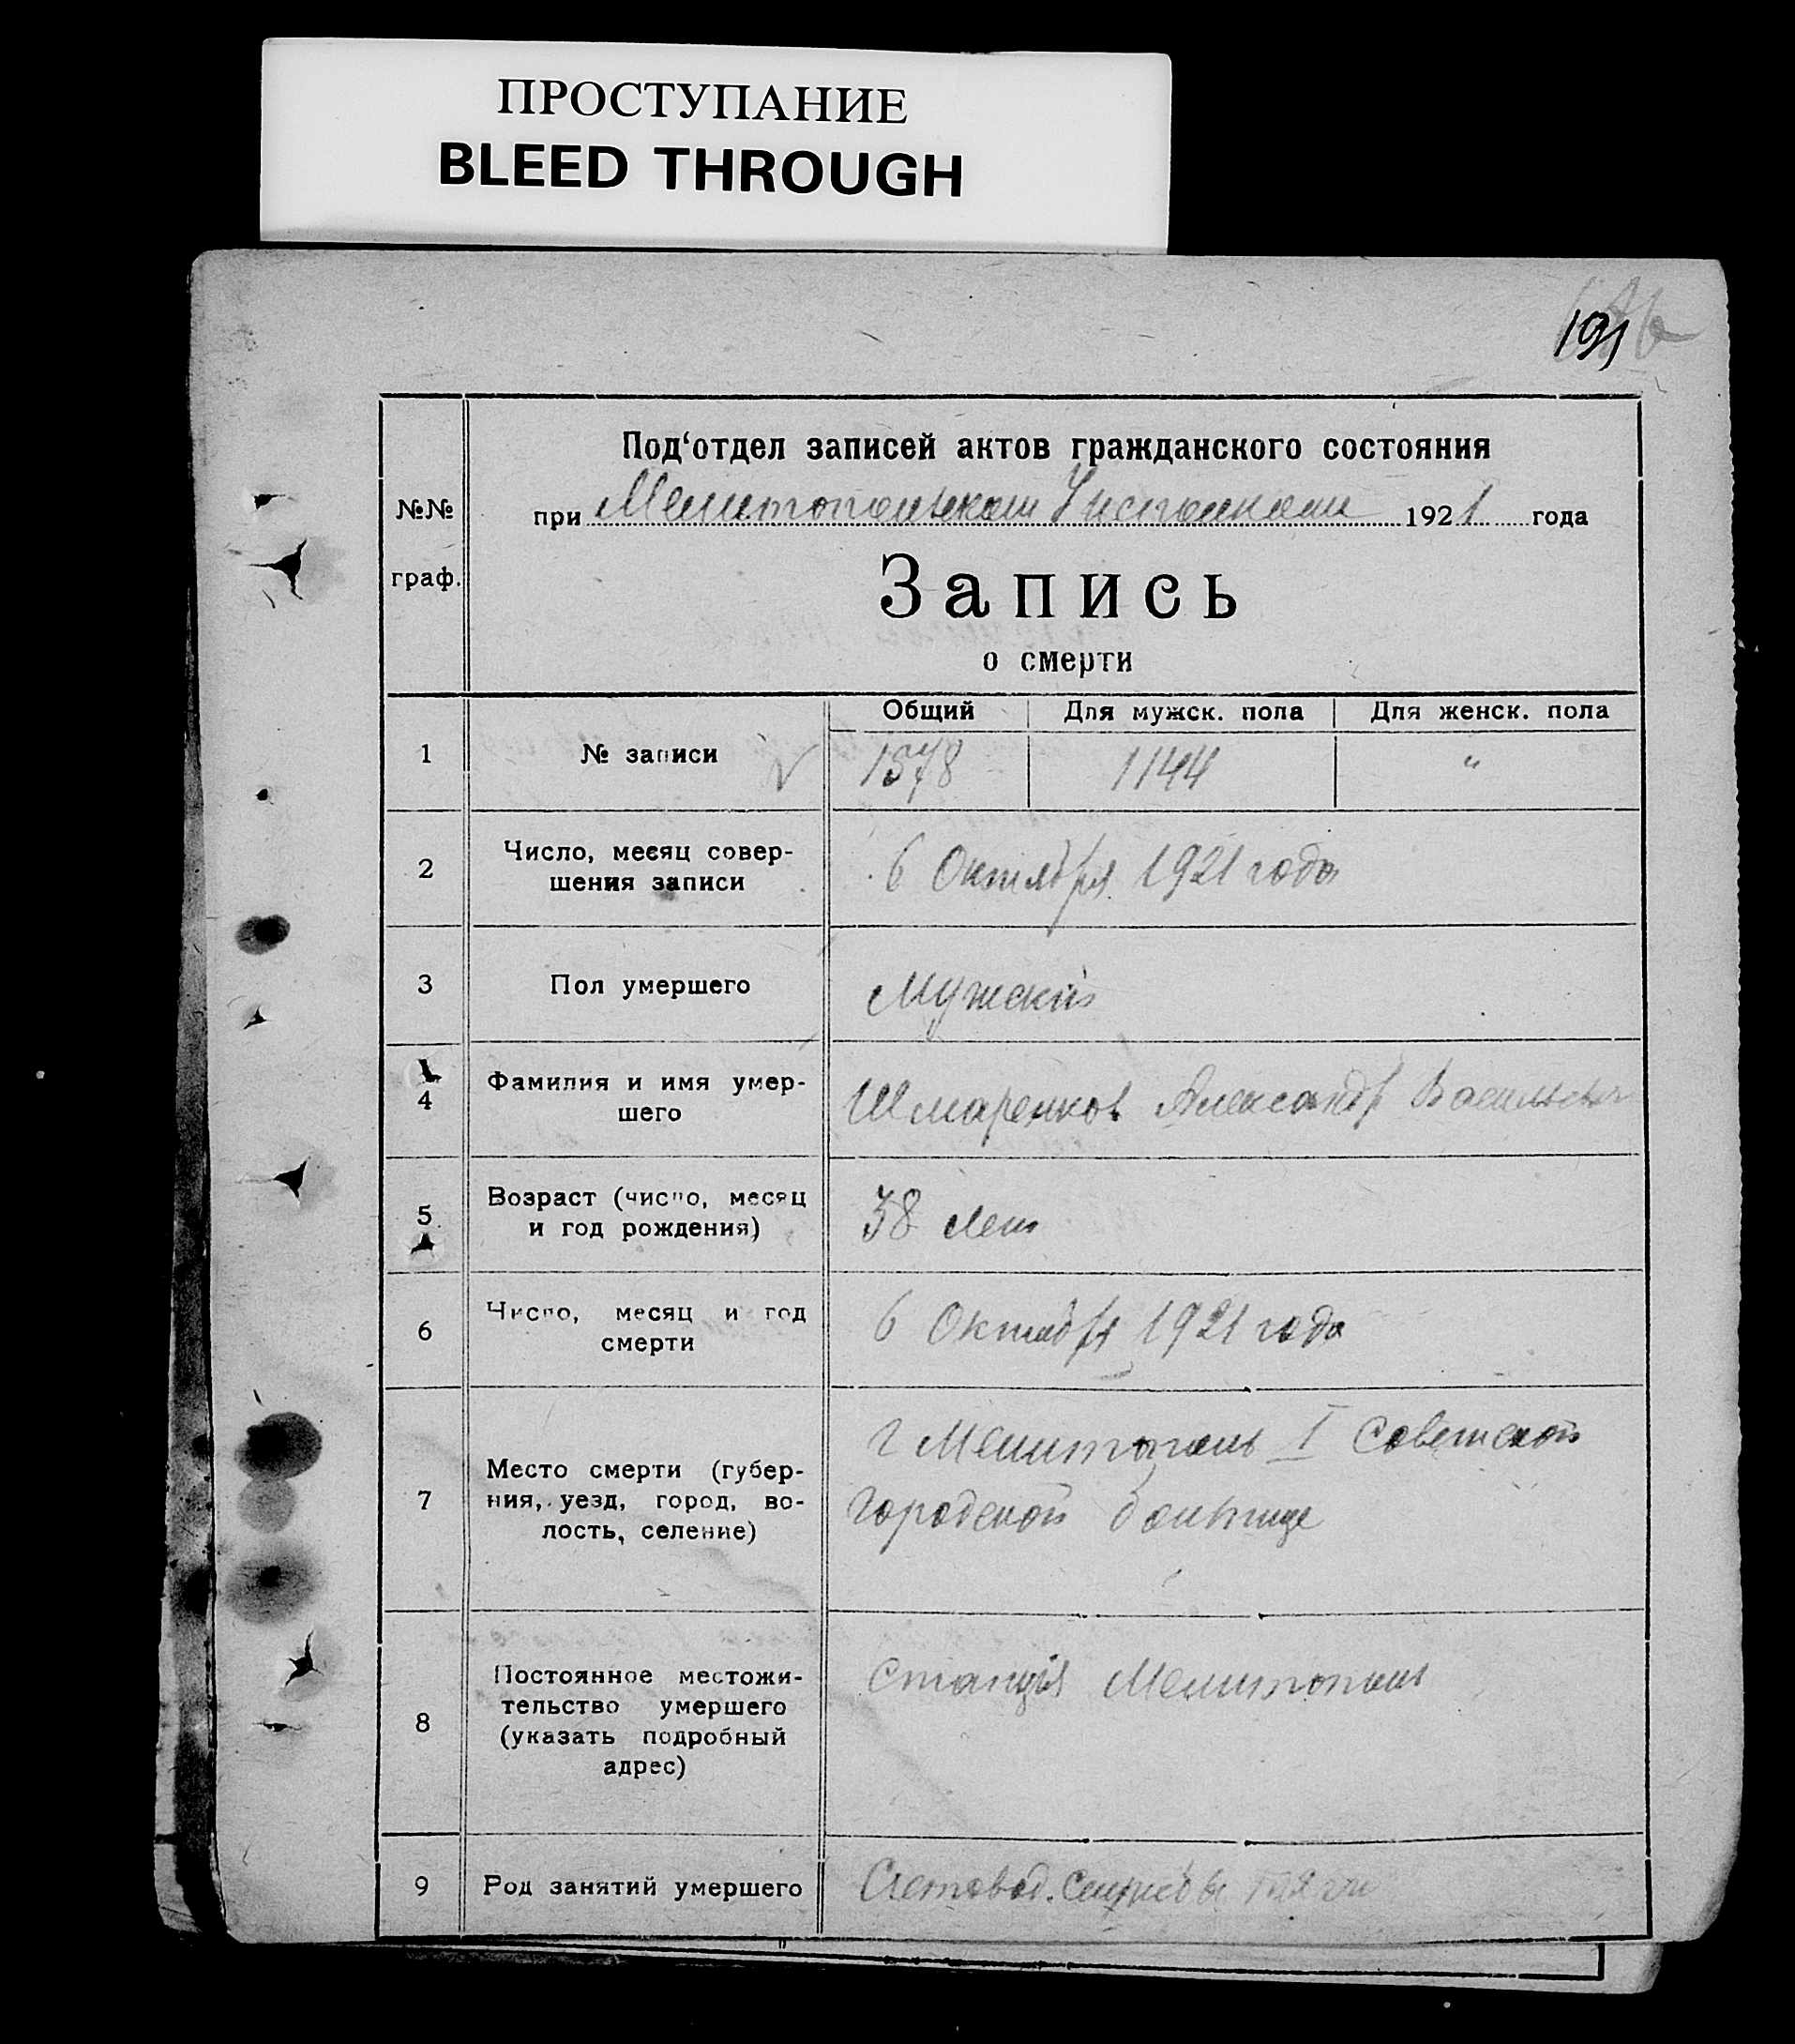 ПРОСТУПАНИЕ
BLEED THROUGH
191
№№
граф.
Под‘отдел записей актов гражданского состояния
при Мелитопольском Уисполкоме 1921 года
Запись
о смерти
Общий Для мужск. пола Для женск. пола
1 № записи 1578 1144 "
2 Число, месяц совер-
шения записи
6 Октября 1921 года
3 Пол умершего Мужской
4 Фамилия и имя умер-
шего
Шмаренков Александр Васильевич
5 Возраст (число, месяц
и год рождения)
38 лет
6 Число, месяц и год
смерти
6 Октября 1921 года
7 Место смерти (губер-
ния, уезд, город, во-
лость, селение)
г Мелитополь I Советской
городской больнице
8 Постоянное местожи-
тельство умершего
(указать подробный
адрес)
Станция Мелитополь
9 Род занятий умершего Счетовод. Службы тяги